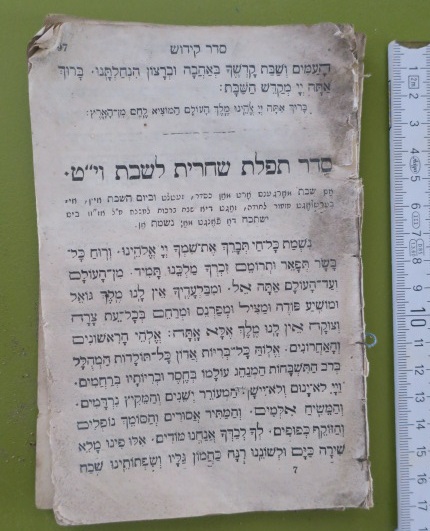 סדר קידוש
הָעַמִּים וְשַׁבַּת קָדְשְׁךָ בְּאַהֲבָה וּבְרָצוֹן הִנְחַלְתָּנוּ. בָּרוּךְ
אַתָּה יְיָ מְקַדֵּשׁ הַשַּׁבָּת:
בָּרוּךְ אַתָּה יְיָ אֱלֹהֵינוּ מֶלֶךְ הָעוֹלָם הַמּוֹצִיא לֶחֶם מִן־הָאָרֶץ:
סדר תפלת שחרית לשבת וי״ט.
נִשְׁמַת כָּל־חַי תְּבָרֵךְ אֶת־שִׁמְךָ יְיָ אֱלֹהֵינוּ. וְרוּחַ כָּל־
בָּשָׂר תְּפָאֵר וּתְרוֹמֵם זִכְרְךָ מַלְכֵּנוּ תָּמִיד. מִן־הָעוֹלָם
וְעַד־הָעוֹלָם אַתָּה אֵל. וּמִבַּלְעָדֶיךָ אֵין לָנוּ מֶלֶךְ גּוֹאֵל
וּמוֹשִׁיעַ פּוֹדֶה וּמַצִּיל וּמְפַרְנֵס וּמְרַחֵם בְּכָל־עֵת צָרָה
וְצוּקָה אֵין לָנוּ מֶלֶךְ אֶלָּא אָתָּה: אֱלֹהֵי הָרִאשׁוֹנִים
וְהָאַחֲרוֹנִים. אֱלוֹהַּ כָּל־בְּרִיּוֹת אֲדוֹן כָּל־תּוֹלָדוֹת הַמְהֻלָּל
בְּרֹב הַתִּשְׁבָּחוֹת הַמְנַהֵג עוֹלָמוֹ בְּחֶסֶד וּבְרִיּוֹתָיו בְּרַחֲמִים.
וַיְיָ לֹא־יָנוּם וְלֹא־יִישָׁן הַמְעוֹרֵר יְשֵׁנִים וְהַמֵּקִיץ נִרְדָּמִים.
וְהַמֵּשִׂיחַ אִלְּמִים. וְהַמַּתִּיר אֲסוּרִים וְהַסּוֹמֵךְ נוֹפְלִים
וְהַזּוֹקֵף כְּפוּפִים. לְךָ לְבַדְּךָ אֲנַחְנוּ מוֹדִים. אִלּוּ פִינוּ מָלֵא
שִׁירָה כַּיָּם וּלְשׁוֹנֵנוּ רִנָּה כַּהֲמוֹן גַּלָּיו וְשִׂפְתוֹתֵינוּ שֶׁבַח
7